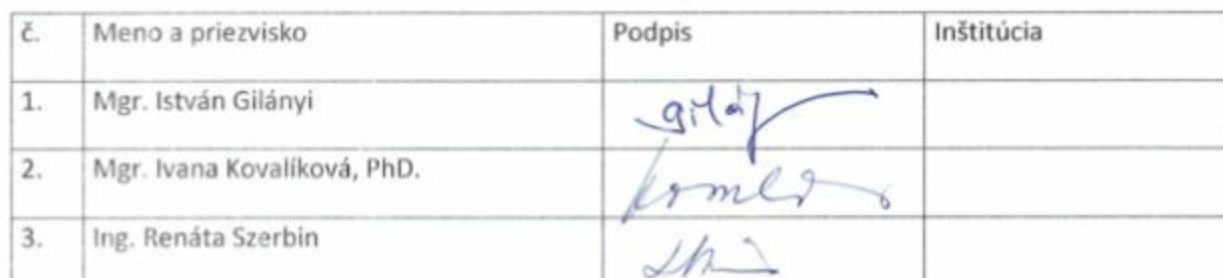 č. Meno a priezvisko Podpis Inštitúcia
1. Mgr. István Gilányi
2. Mgr. Ivana Kovalíková, PhD.
3. Ing. Renáta Szerbin